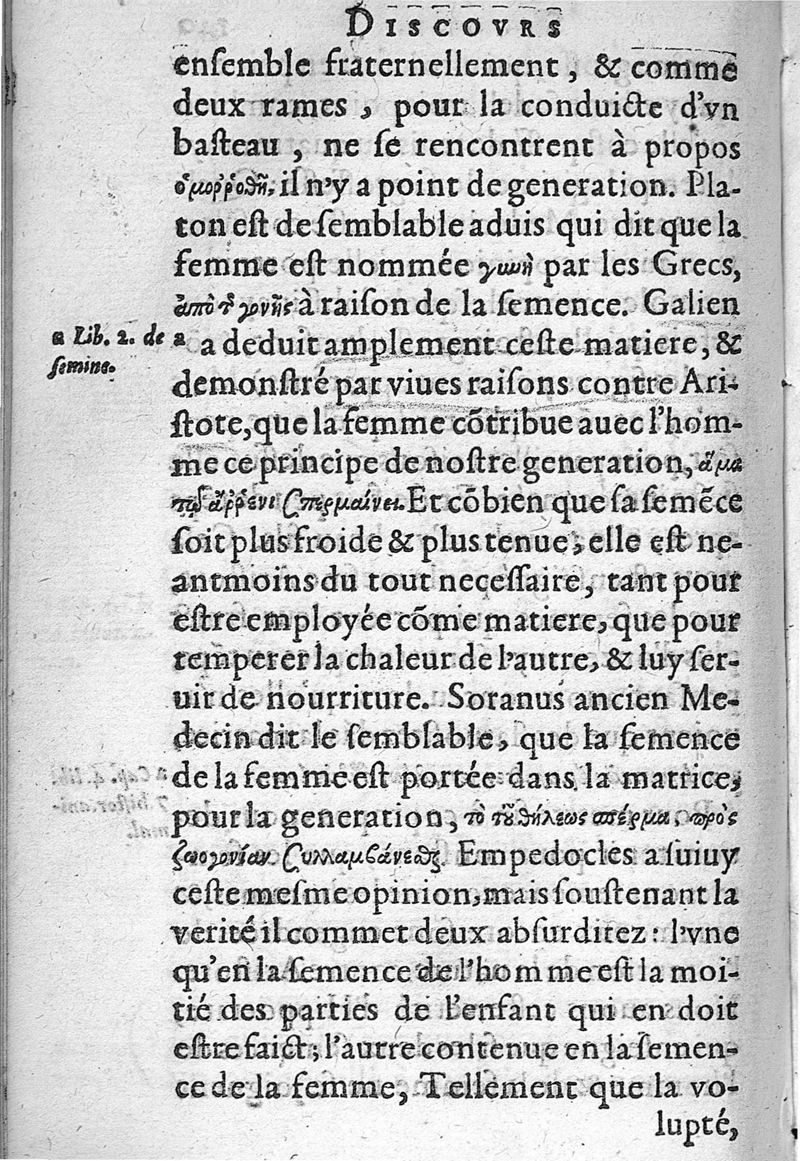 DISCOVRS
enſemble fraternellement, & comme
deux rames, pour la conduicte d'vn
baſteau, ne ſe rencontrent à propos
ὁμοῤῥοθῇ, il n'y a point de generation. Pla-
ton eſt de ſemblable aduis qui dit que la
femme eſt nommée γυνὴ par les Grecs,
ἀπὸ τ γονῆς à raiſon de la ſemence. Galien
a Lib. 2. de
ſemine.
a a deduit amplement ceſte matiere, &
demonſtré par viues raiſons contre Ari-
ſtote, que la femme cõtribue auec l'hom-
me ce principe de noſtre generation, ἅμα
τῷ ἄῤῥενι σπερμαίνει. Et cõbien que ſa ſemẽce
ſoit plus froide & plus tenue, elle eſt ne-
antmoins du tout neceſſaire, tant pour
eſtre employée cõme matiere, que pour
temperer la chaleur de l'autre, & luy ſer-
uir de nourriture. Soranus ancien Me-
decin dit le ſemblable, que la ſemence
de la femme eſt portée dans la matrice,
pour la generation, τὸ τοῦ θήλεως σπέρμα, πρὸς
ζωογονίαν συλλαμβάνεσθαι. Empedocles a ſuiuy
ceſte meſme opinion, mais ſouſtenant la
verité il commet deux abſurditez: l'vne
qu'en la ſemence de l'homme eſt la moi-
tié des parties de l'enfant qui en doit
eſtre faict; l'autre contenue en la ſemen-
ce de la femme, Tellement que la vo-
lupté,